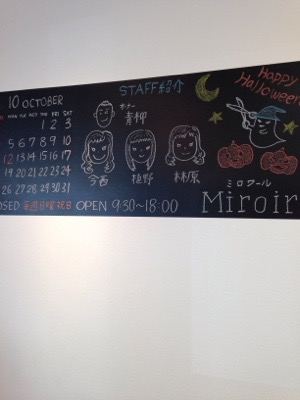 10 OCTOBER
MON TUE WED THU FRI SAT
1 2 3
5 6 7 8 9 10
12 13 14 15 16 17
19 20 21 22 23 24
26 27 28 29 30 31
STAFF紹介
オーナー
青柳
今西
植野
林原
Happy
Halloween
ミロワール
Miroir
OSED 毎週日曜祝日 OPEN 9:30~18:00